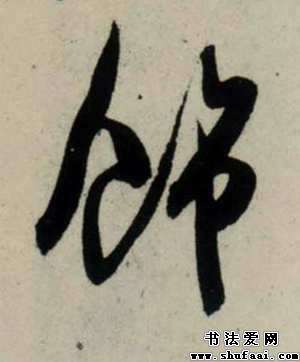 飾
书法爱网
www.shufaai.com